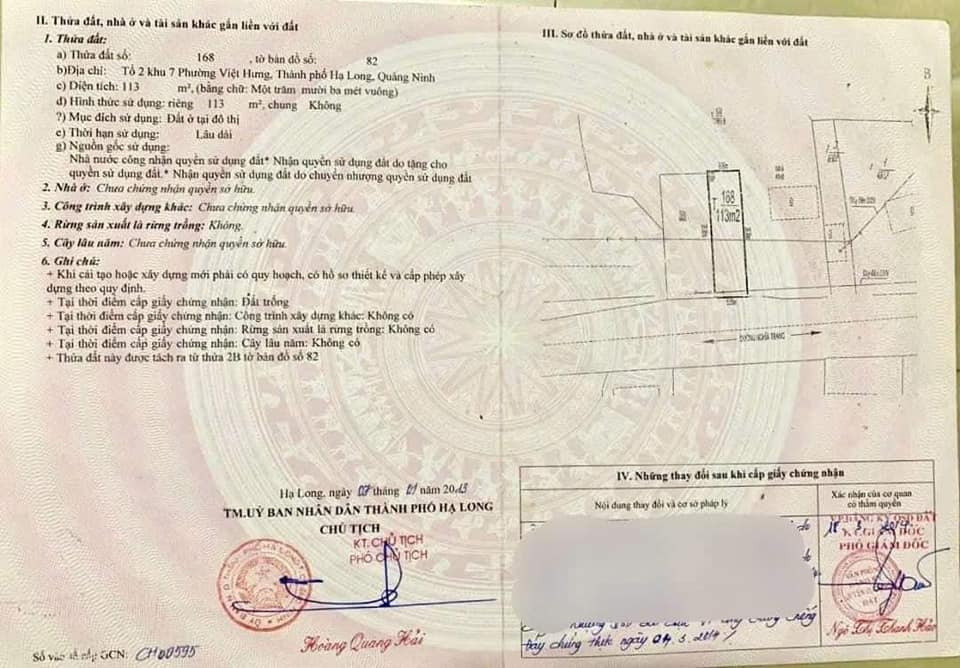 II. Thửa đất, nhà ở và tài sản khác gắn liền với đất
1. Thửa đất:
a) Thửa đất số: 168 , tờ bản đồ số: 82
b)Địa chỉ: Tổ 2 khu 7 Phường Việt Hưng, Thành phố Hạ Long, Quảng Ninh
c) Diện tích: 113 m², (bằng chữ: Một trăm mười ba mét vuông)
d) Hình thức sử dụng: riêng 113 m², chung Không
?) Mục đích sử dụng: Đất ở tại đô thị
e) Thời hạn sử dụng: Lâu dài
g) Nguồn gốc sử dụng:
Nhà nước công nhận quyền sử dụng đất* Nhận quyền sử dụng đất do tặng cho
quyền sử dụng đất.* Nhận quyền sử dụng đất do chuyển nhượng quyền sử dụng đất
2. Nhà ở: Chưa chứng nhận quyền sở hữu.
3. Công trình xây dựng khác: Chưa chứng nhận quyền sở hữu.
4. Rừng sản xuất là rừng trồng: Không.
5. Cây lâu năm: Chưa chứng nhận quyền sở hữu.
6. Ghi chú:
+ Khi cải tạo hoặc xây dựng mới phải có quy hoạch, có hồ sơ thiết kế và cấp phép xây
dựng theo quy định.
+ Tại thời điểm cấp giấy chứng nhận: Đất trống
+ Tại thời điểm cấp giấy chứng nhận: Công trình xây dựng khác: Không có
+ Tại thời điểm cấp giấy chứng nhận: Rừng sản xuất là rừng trồng: Không có
+ Tại thời điểm cấp giấy chứng nhận: Cây lâu năm: Không có
+ Thửa đất này được tách ra từ thửa 2B tờ bản đồ số 82
Hạ Long, ngày 07 tháng 01 năm 2013
TM.UỶ BAN NHÂN DÂN THÀNH PHỐ HẠ LONG
CHỦ TỊCH
KT. CHỦ TỊCH
PHÓ CHỦ TỊCH
Hoàng Quang Hải
Số vào sổ cấp GCN: CH00595
III. Sơ đồ thửa đất, nhà ở và tài sản khác gắn liền với đất
B
168
113m2
ĐƯỜNG NGHĨA TRANG
IV. Những thay đổi sau khi cấp giấy chứng nhận
Nội dung thay đổi và cơ sở pháp lý
Xác nhận của cơ quan
có thẩm quyền
PHÓ GIÁM ĐỐC
đây chứng thực ngày 04.3.2014
Ngô Thị Thanh Hảo